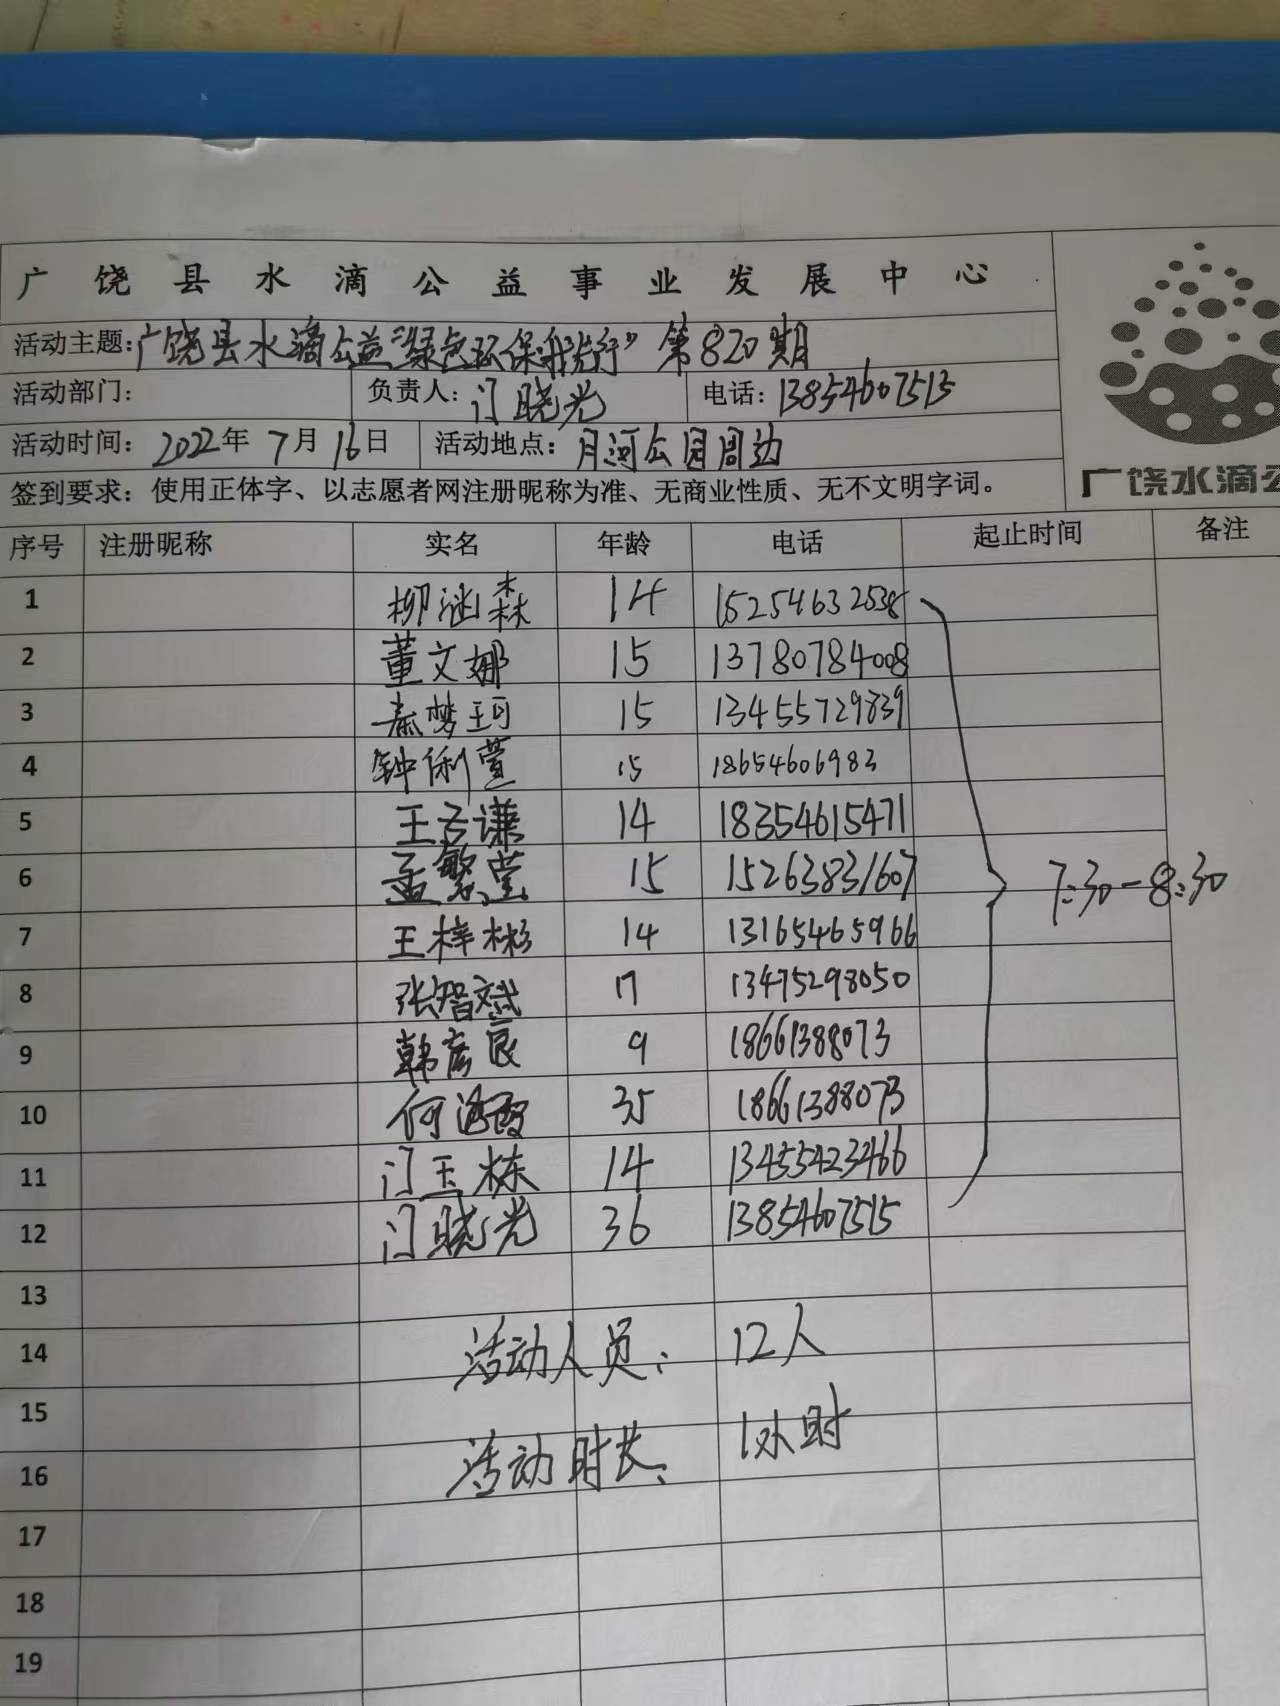 广饶县水滴公益事业发展中心
活动主题:广饶县水滴公益"绿色环保我先行"第820期
活动部门: 负责人:门晓光 电话:13854607515
活动时间:2022年7月16日 活动地点:月河公园周边
签到要求:使用正体字、以志愿者网注册昵称为准、无商业性质、无不文明字词。
广饶水滴公
序号 注册昵称 实名 年龄 电话 起止时间 备注
1 柳涵森 14 15254632538
2 董文娜 15 13780784008
3 秦梦珂 15 13455729839
4 钟俐萱 15 18654606983
5 王子谦 14 18354615471
6 孟繁莹 15 15263831607
7:30-8:30
7 王梓彬 14 13165465966
8 张智斌 17 13475298050
9 韩彦良 9 18661388073
10 何 霞 35 18661388073
11 门玉栋 14 13455423466
12 门晓光 36 13854607515
13
14 活动人员: 12人
15
16 活动时长: 1小时
17
18
19